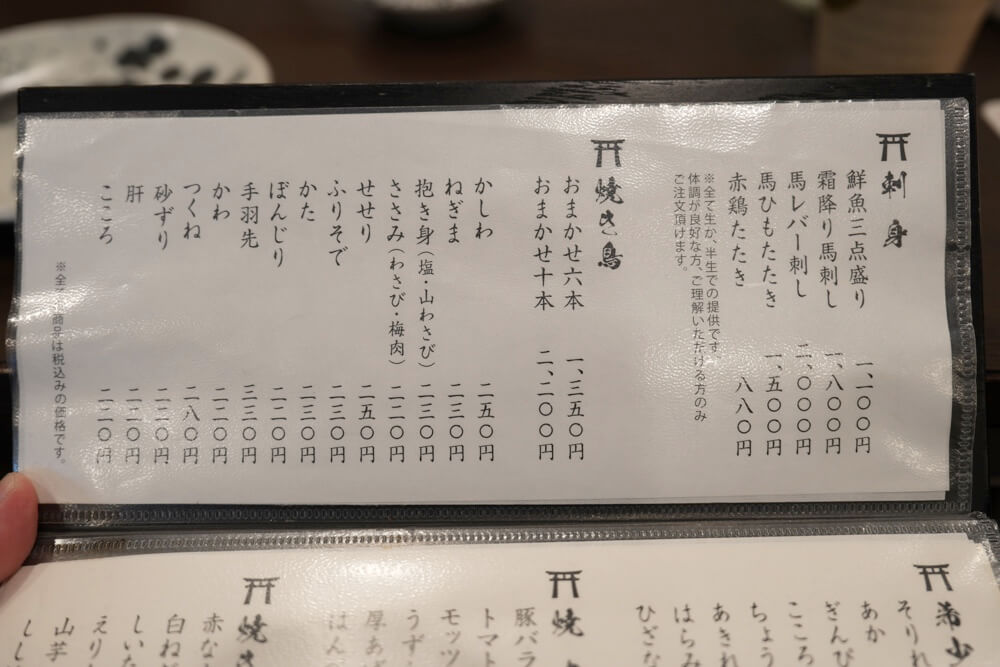 刺身
鮮魚三点盛り 一、一〇〇円
霜降り馬刺し 一、八〇〇円
馬レバー刺し 二、〇〇〇円
馬ひもたたき 一、五〇〇円
赤鶏たたき 八八〇円
※全て生か、半生での提供です。
体調が良好な方、ご理解いただける方のみ
ご注文頂けます。
焼き鳥
おまかせ六本 一、三五〇円
おまかせ十本 二、二〇〇円
かしわ 二五〇円
ねぎま 二三〇円
抱き身(塩・山わさび) 二三〇円
ささみ(わさび・梅肉) 二二〇円
せせり 二五〇円
ふりそで 二三〇円
かた 二三〇円
ぼんじり 二二〇円
手羽先 三三〇円
かわ 二二〇円
つくね 二八〇円
砂ずり 二二〇円
肝 二二〇円
こころ 二二〇円
※全ての商品は税込みの価格です。
それ
あか
ぎんび
こころ
ちょう
あきれ
はらみ
ひざな
焼
豚バラ
トマト
モッツ
うず
厚あ
はん
焼き
赤な
白ね
しいた
えり
山芋
しし